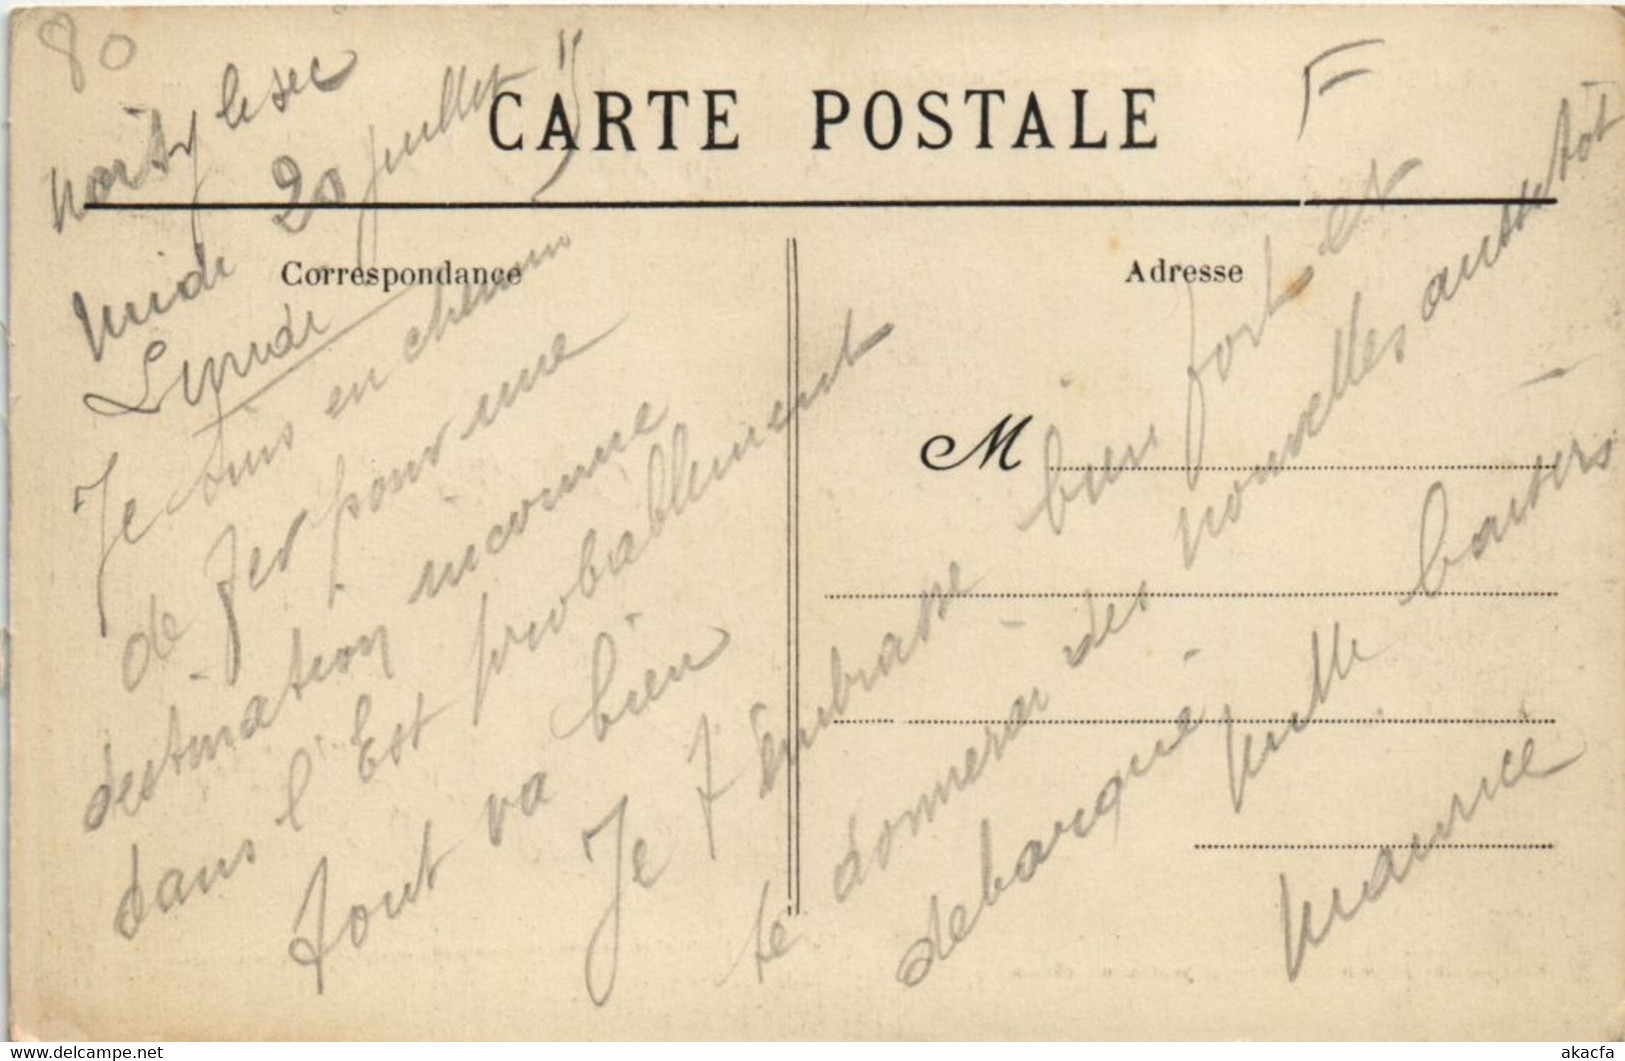 80
CARTE POSTALE
F
Noisy le sec
midi 20 juillet
Lundi
Correspondance
Adresse
M
Je suis en chemin
de fer pour une
destination inconnue
dans l'Est probablement
tout va bien
Je t'embrasse bien fort et
te donnerai des nouvelles aussitôt
debarqué mille baisers
Maurice
akacfa
delcampe.net